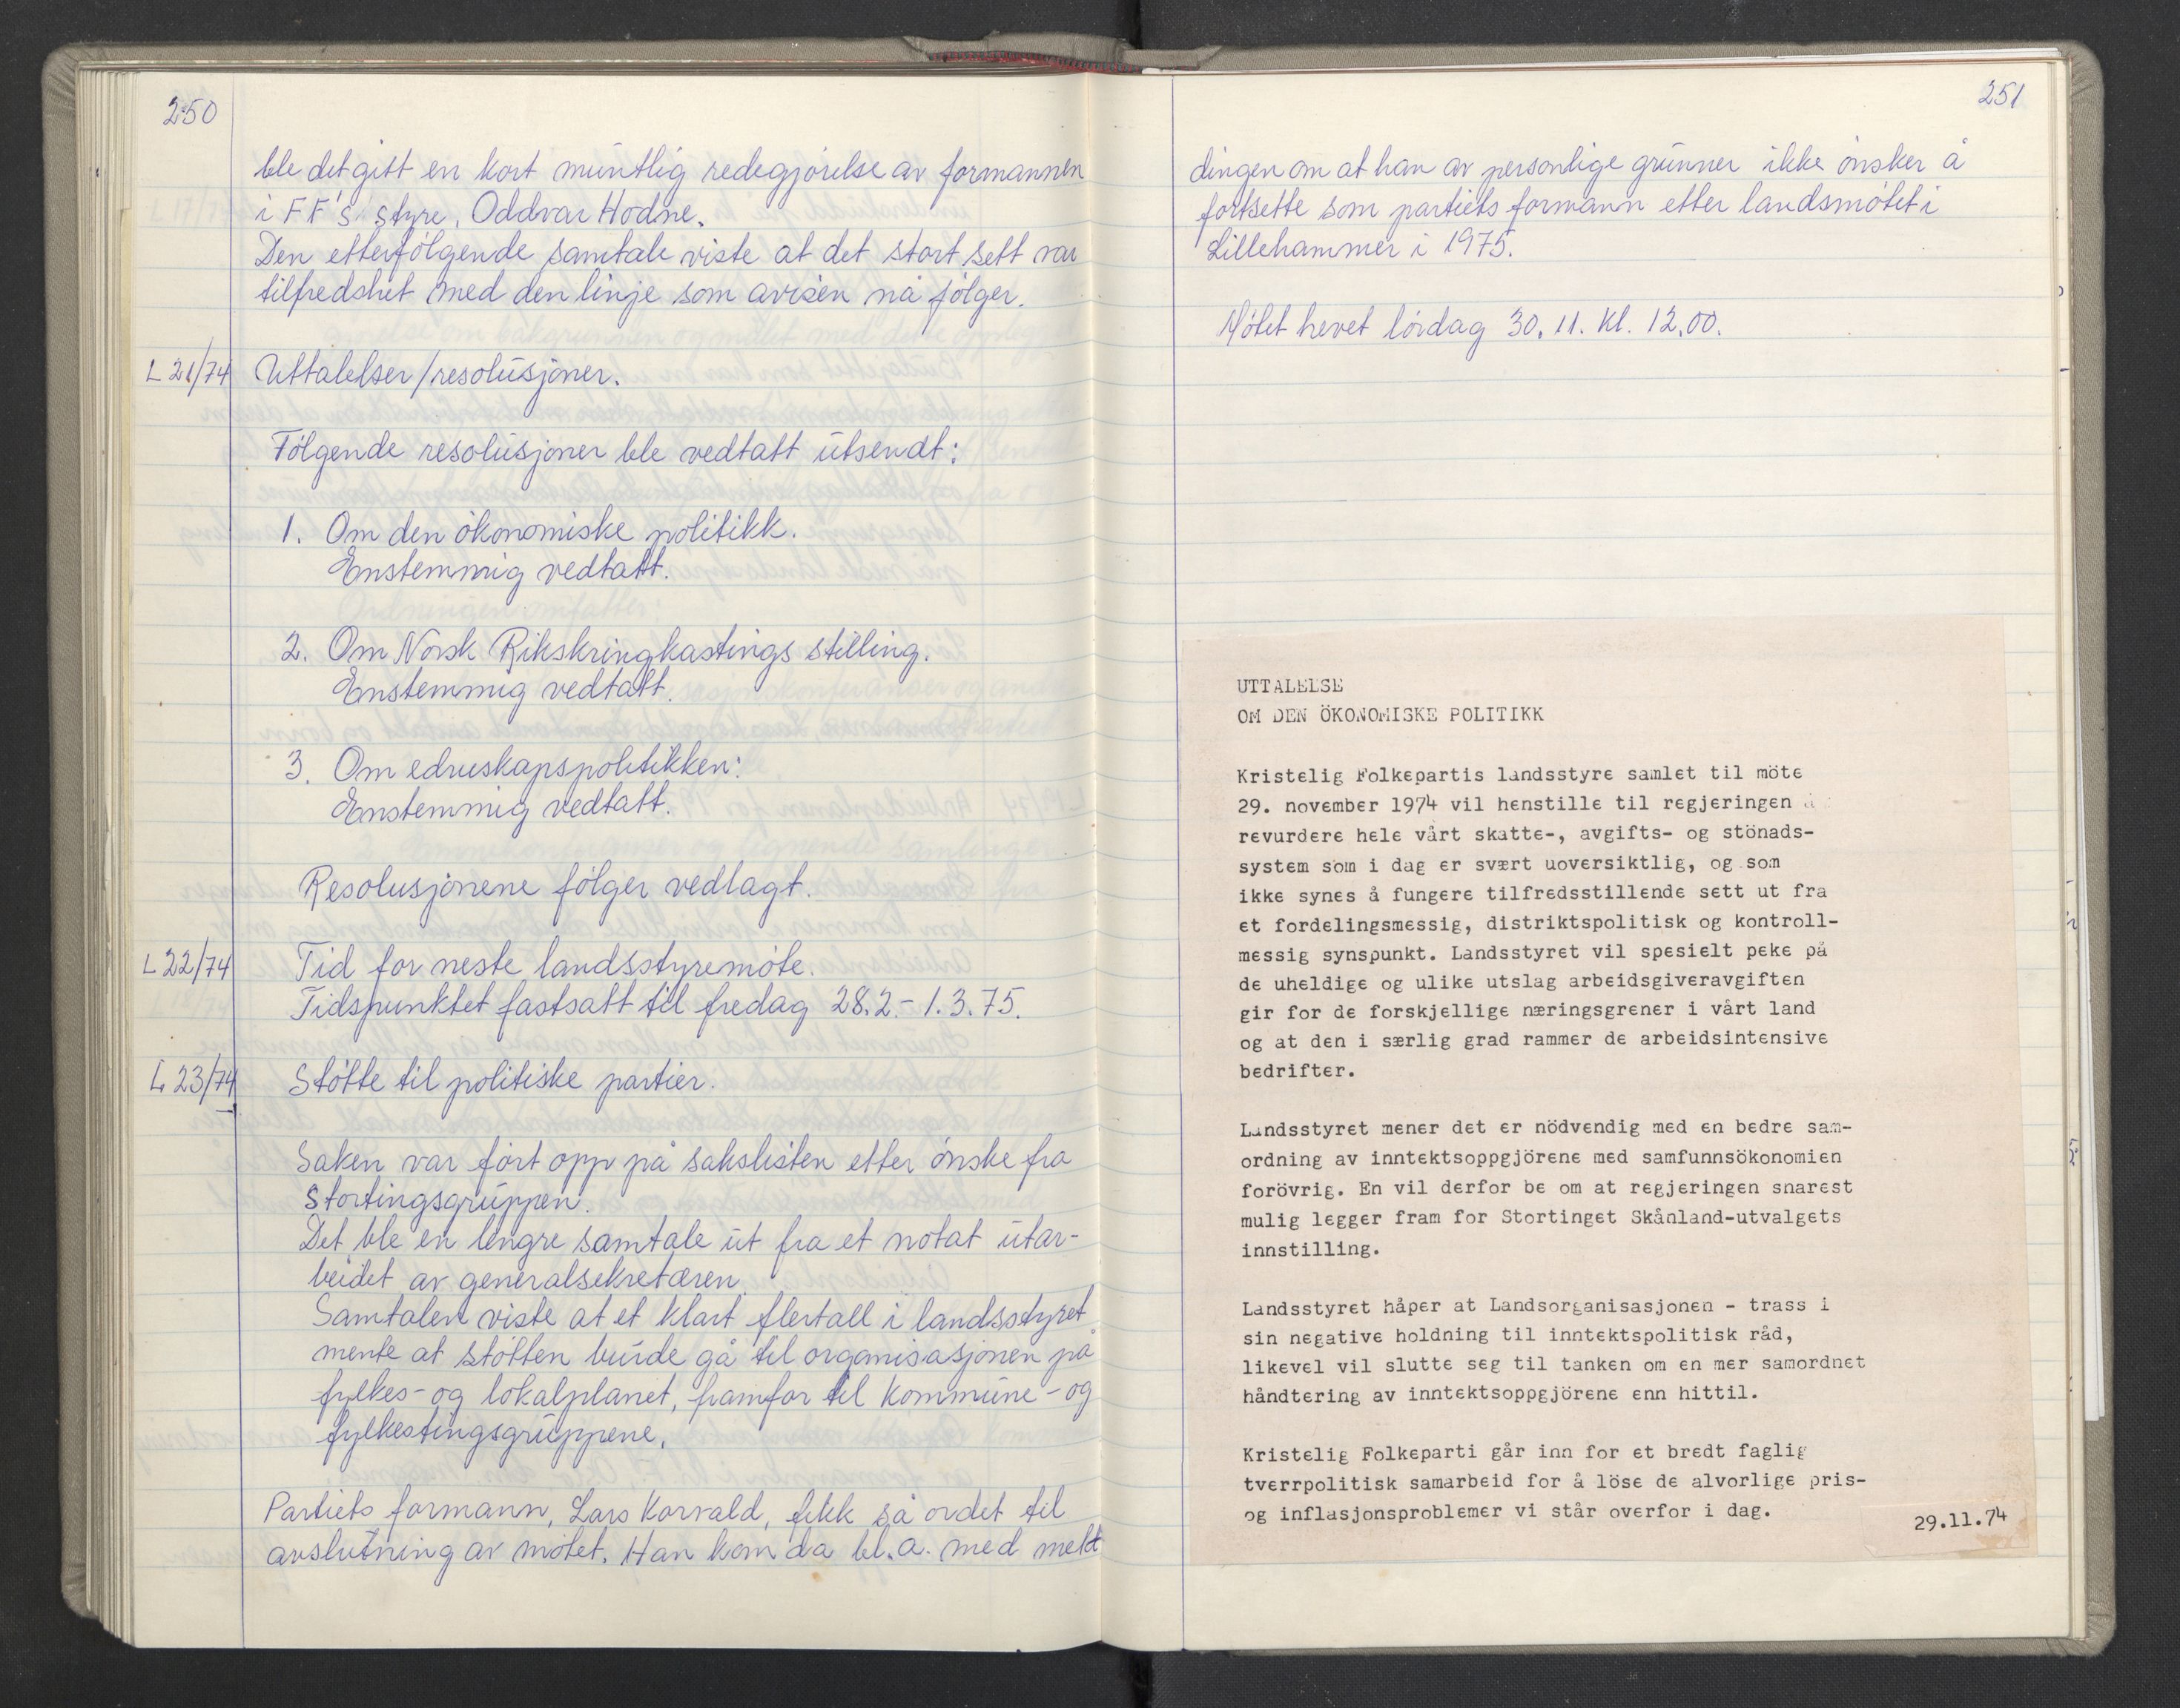 250
ble det gitt en kort muntlig redegjörelse av formannen
i FF's styre, Oddvar Hodne.
Den etterfölgende samtale viste at det stort sett var
tilfredshet med den linje som avisen nå fölger.
L 21/74 Uttalelser/resolusjoner.
Fölgende resolusjoner ble vedtatt utsendt:
1. Om den ökonomiske politikk.
Enstemmig vedtatt.
2. Om Norsk Rikskringkastings stilling.
Enstemmig vedtatt.
3. Om edruskapspolitikken:
Enstemmig vedtatt.
Resolusjonene fölger vedlagt.
L 22/74 Tid for neste landsstyremöte.
Tidspunktet fastsatt til fredag 28.2.- 1.3.75.
L 23/74 Stötte til politiske partier.
Saken var fört opp på sakslisten etter önske fra
Stortingsgruppen.
Det ble en lengre samtale ut fra et notat utar-
beidet av generalsekretæren.
Samtalen viste at et klart flertall i landsstyret
mente at stötten burde gå til organisasjonen på
fylkes- og lokalplanet, framfor til kommune- og
fylkestingsgruppene.
Partiets formann, Lars Korvald, fikk så ordet til
avslutning av mötet. Han kom da bl.a. med meld
251
dingen om at han av personlige grunner ikke önsker å
fortsette som partiets formann etter landsmötet i
Lillehammer i 1975.
Mötet hevet lördag 30.11. kl. 12.00.
UTTALELSE
OM DEN ÖKONOMISKE POLITIKK
Kristelig Folkepartis landsstyre samlet til möte
29. november 1974 vil henstille til regjeringen å
revurdere hele vårt skatte-, avgifts- og stönads-
system som i dag er svært uoversiktlig, og som
ikke synes å fungere tilfredsstillende sett ut fra
et fordelingsmessig, distriktspolitisk og kontroll-
messig synspunkt. Landsstyret vil spesielt peke på
de uheldige og ulike utslag arbeidsgiveravgiften
gir for de forskjellige næringsgrener i vårt land
og at den i særlig grad rammer de arbeidsintensive
bedrifter.
Landsstyret mener det er nödvendig med en bedre sam-
ordning av inntektsoppgjörene med samfunnsökonomien
forövrig. En vil derfor be om at regjeringen snarest
mulig legger fram for Stortinget Skånland-utvalgets
innstilling.
Landsstyret håper at Landsorganisasjonen - trass i
sin negative holdning til inntektspolitisk råd,
likevel vil slutte seg til tanken om en mer samordnet
håndtering av inntektsoppgjörene enn hittil.
Kristelig Folkeparti går inn for et bredt faglig
tverrpolitisk samarbeid for å löse de alvorlige pris-
og inflasjonsproblemer vi står overfor i dag.
29.11.74